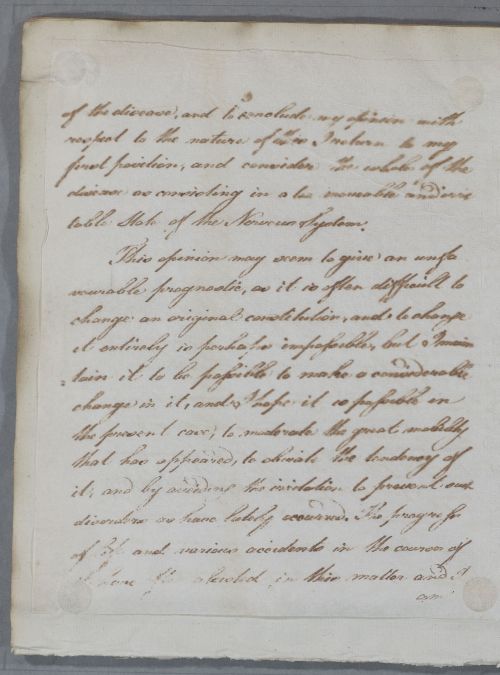 of the disease, and to conclude my opinion with
respect to the nature of I return to my
first position, and consider the whole of the
disease as consisting in a too moveable and irri
table State of the Nervous System.
This opinion may seem to give an unfa
vourable prognostic, as it is often difficult to
change an original constitution, and to change
it entirely is perhaps impossible, but I main
tain it to be possible to make a considerable
change in it, and I hope it is possible in
the present case, to moderate the great mobility
that has appeared, to obviate the tendency of
it, and by avoiding the irritation to prevent such
disorders as have lately occurred. The progress
of life and various accidents in the course of
it have in this matter and I
am